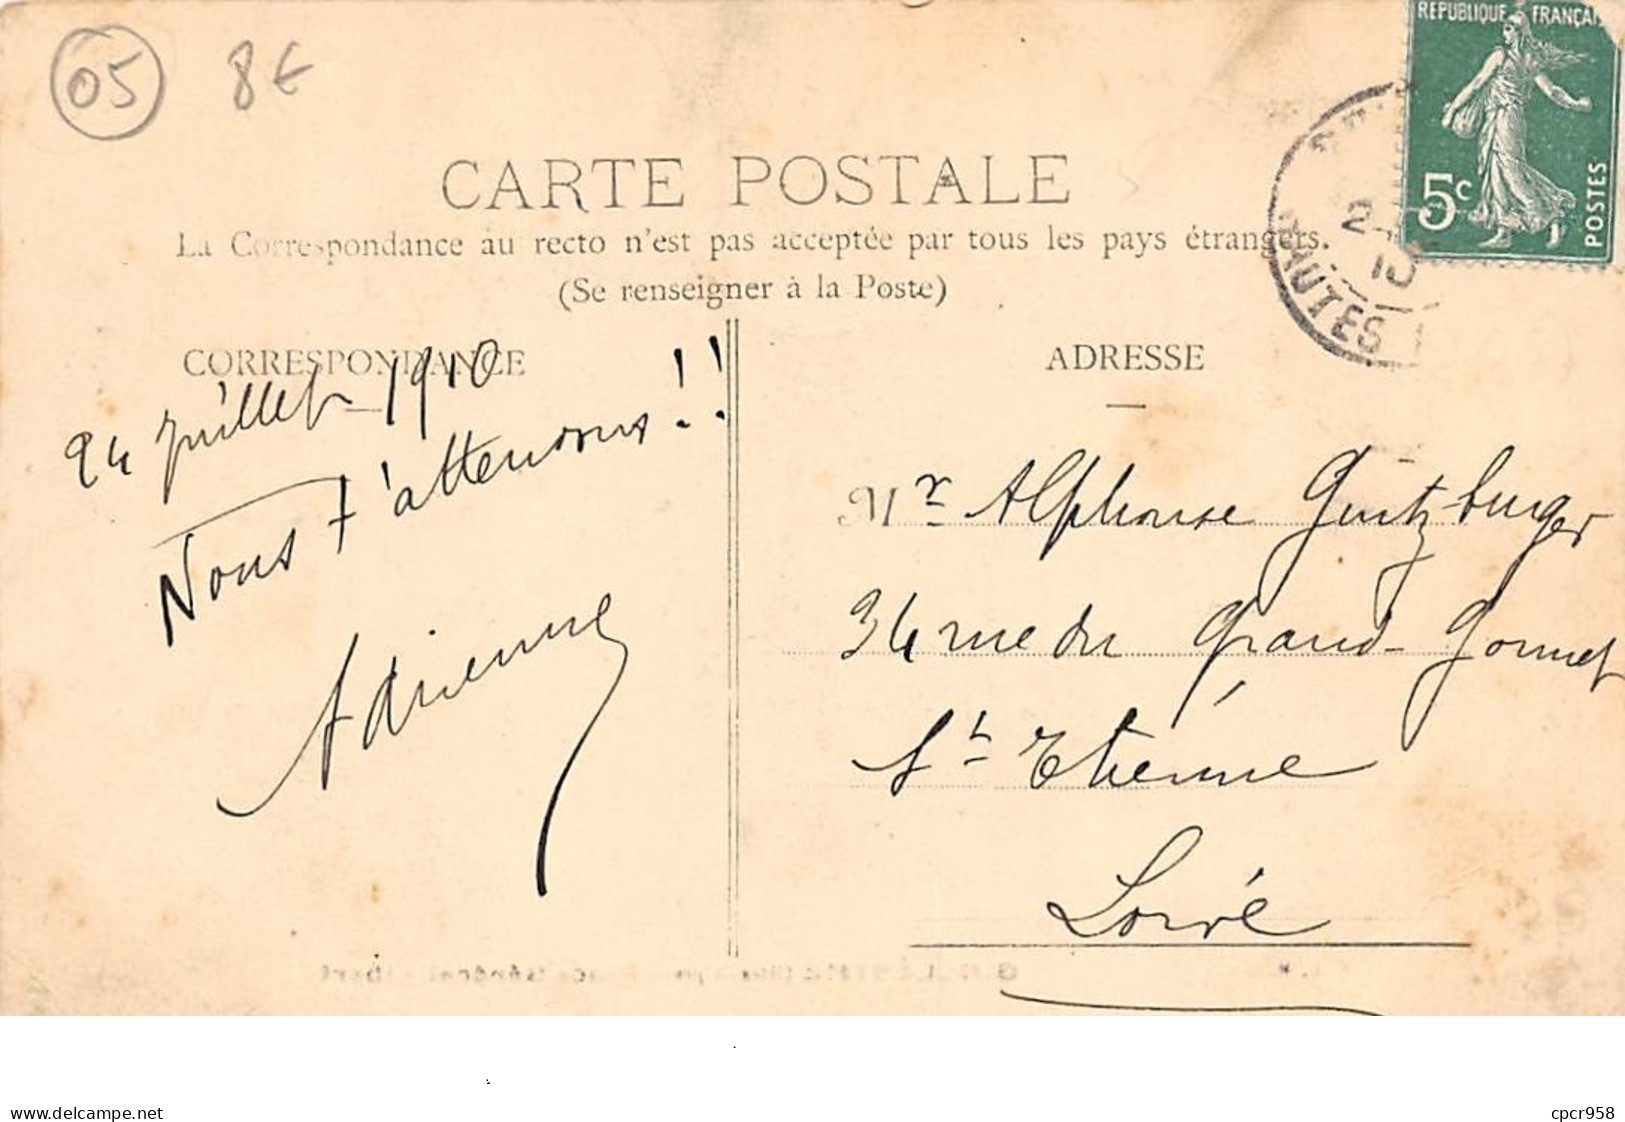 05
8€
RÉPUBLIQUE FRANÇAI
5c
POSTES
2
10
HAUTES
CARTE POSTALE
La Correspondance au recto n'est pas acceptée par tous les pays étrangers.
(Se renseigner à la Poste)
CORRESPONDANCE
ADRESSE
24 Juillet 1910
Nous t'attendons!!
Adrienne
Mr Alphonse Guntzburger
34 rue du Grand-Gonnet
St Etienne
Loire
www.delcampe.net
cpcr958